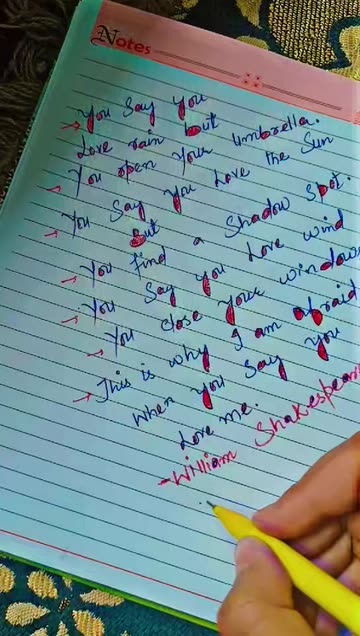 Notes
You Say You
→ Love rain but
You open your Umbrella.
→ You Say You Love the Sun
But
→ You find a Shadow Spot.
→ You Say You Love wind
→ You close your windows
→ This is why I am afraid
When you Say You
Love me.
-William Shakespeare